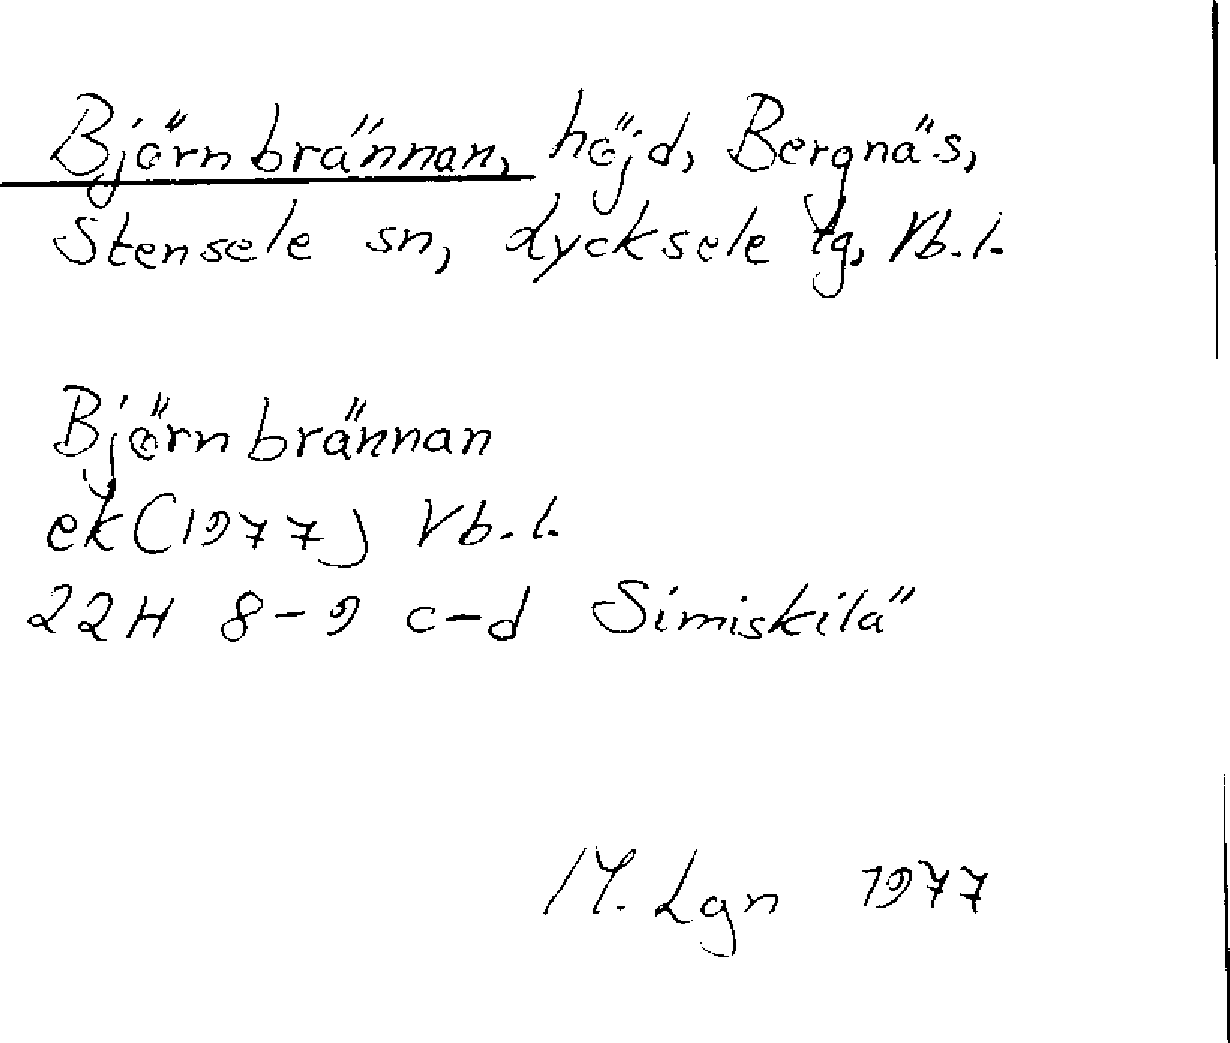 Björnbrännan, höjd, Bergnäs,
Stensele sn, Lycksele tg, Vb. l.
Björnbrännan
ek (1977) Vb. l.
22H 8-9 c-d Simiskilä
M. Lgn 1977